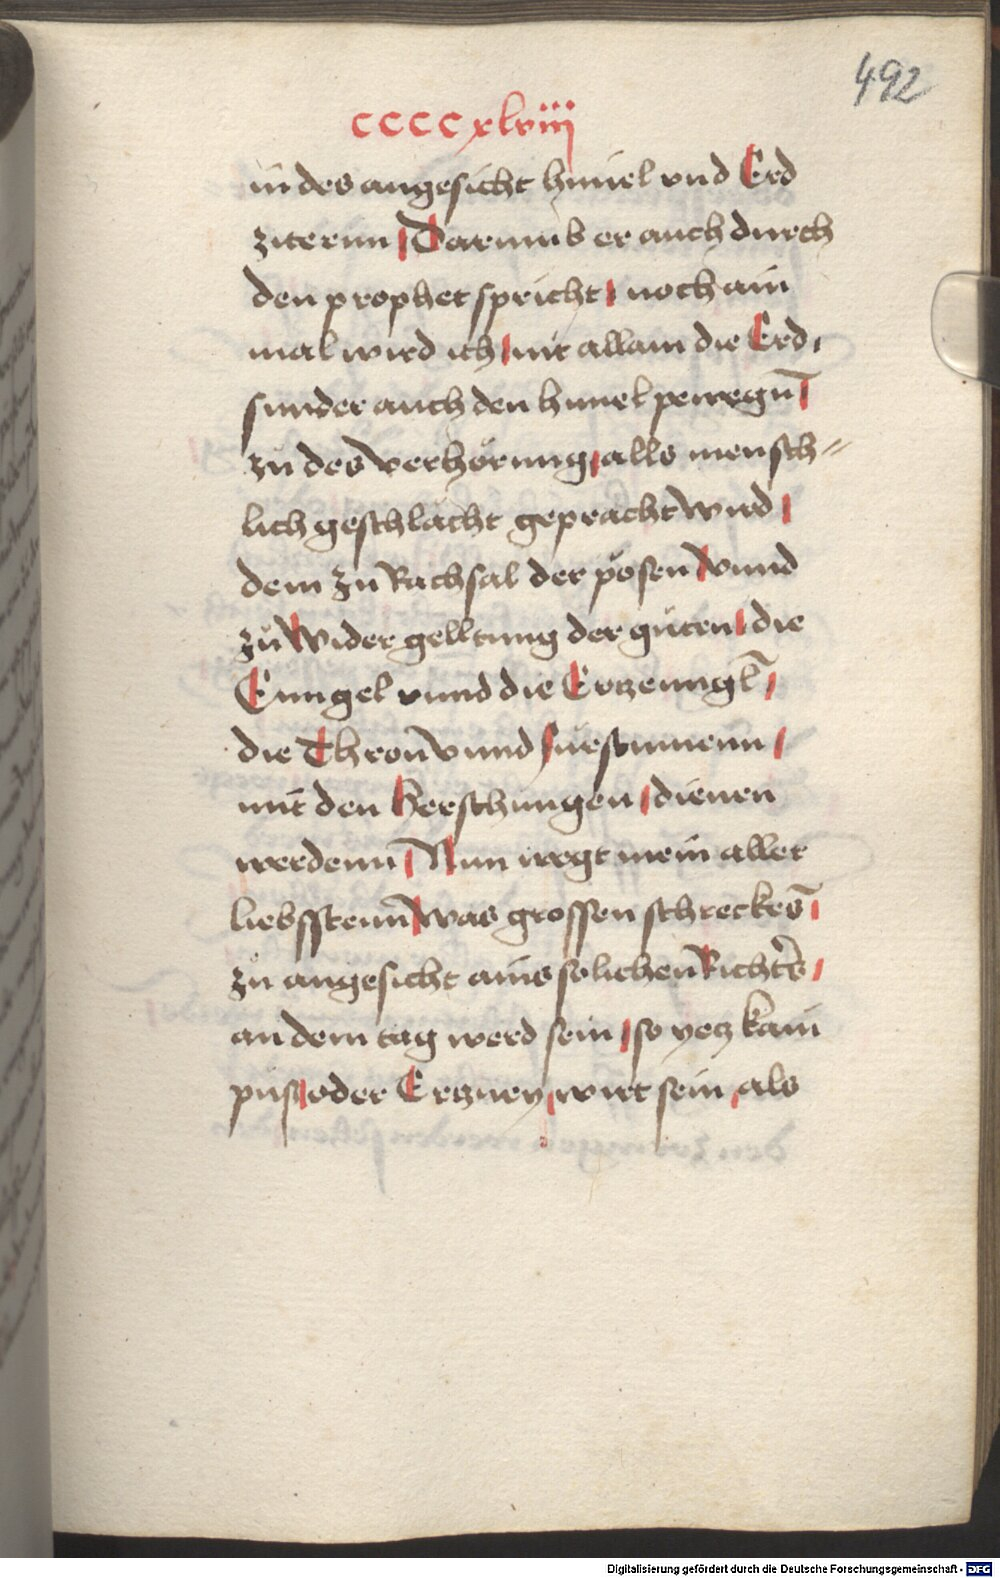 492
ccccxlviij
in des angesicht himel vnd Erd
ziternn Darumb er auch durch
den prophet spricht noch ain
mal wird ich nit allain die Erd
sunder auch den himel pewegn̄
zů des verhörung alls mensch=
lich geschlächt gepracht wird
dem zu Rachsal der pösen vnnd
zů wider gelltung der gůten die
Enngel vnnd die Ertzenngl̄
die Thron̄ vnnd fürstnnenn
mit den herschungen dienen
werdenn Nun wegt mein aller
liebsstenn̄ was grossen schreckes̄
zů angesicht ains solichen Richters
an dem tag werd sein so yetz kain
půss oder Ertzney wirt sein als
Digitalisierung gefördert durch die Deutsche Forschungsgemeinschaft - DFG